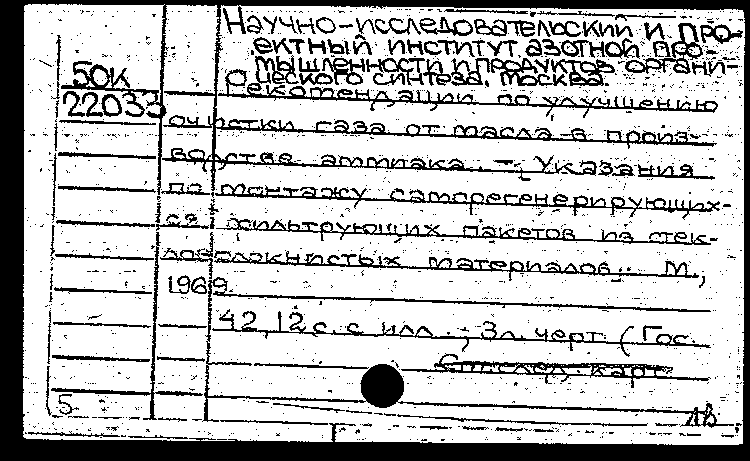 Научно-исследовательский и про-
ектный институт азотной про-
мышленности и продуктов органи-
ческого синтеза. Москва.
50К
22033
Рекомендации по улучшению
очистки газа от масла в произ-
водстве аммиака. – Указания
по монтажу саморегенерирующих-
ся фильтрующих пакетов из стек-
ловолокнистых материалов. М.,
1969.
42, 12 с. с илл.; 3 л. черт. (Гос.
См. след. карт.
5
1В